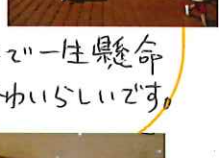 で一生懸命
わいらしいです。